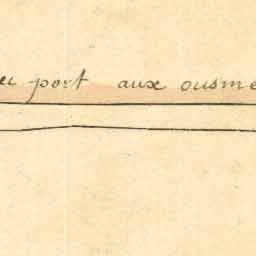 port aux ousme